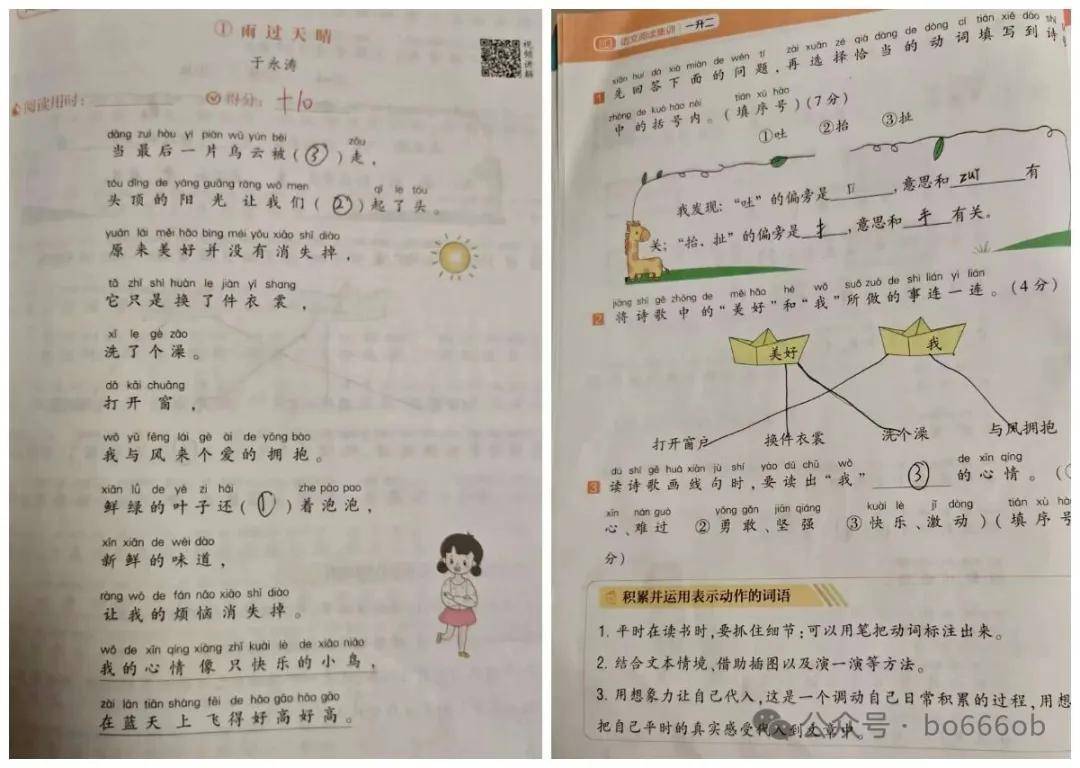 ① 雨过天晴
于永涛
视频讲解
阅读用时：
得分：+10
dāng zuì hòu yí piàn wū yún bèi zǒu
当最后一片乌云被(③)走，
tóu dǐng de yáng guāng ràng wǒ men qǐ le tóu
头顶的阳光让我们(②)起了头。
yuán lái měi hǎo bìng méi yǒu xiāo shī diào
原来美好并没有消失掉，
tā zhǐ shì huàn le jiàn yī shang
它只是换了件衣裳，
xǐ le gè zǎo
洗了个澡。
dǎ kāi chuāng
打开窗，
wǒ yǔ fēng lái gè ài de yōng bào
我与风来个爱的拥抱。
xiān lǜ de yè zi hái zhe pào pao
鲜绿的叶子还(①)着泡泡，
xīn xiān de wèi dào
新鲜的味道，
ràng wǒ de fán nǎo xiāo shī diào
让我的烦恼消失掉。
wǒ de xīn qíng xiàng zhī kuài lè de xiǎo niǎo
我的心情像只快乐的小鸟，
zài lán tiān shàng fēi de hǎo gāo hǎo gāo
在蓝天上飞得好高好高。
语文阅读集训 一升二
xiān huí dá xià miàn de wèn tí zài xuǎn zé qià dàng de dòng cí tián xiě dào shī
1 先回答下面的问题，再选择恰当的动词填写到诗
zhōng de kuò hào nèi tián xù hào
中的括号内。(填序号)(7分)
①吐 ②抬 ③扯
我发现：“吐”的偏旁是 口 ，意思和 zuǐ 有
关；“抬、扯”的偏旁是 扌 ，意思和 手 有关。
jiāng shī gē zhōng de měi hǎo hé wǒ suǒ zuò de shì lián yi lián
2 将诗歌中的“美好”和“我”所做的事连一连。(4分)
美好 我
打开窗户 换件衣裳 洗个澡 与风拥抱
dú shī gē huà xiàn jù shí yào dú chū wǒ de xīn qíng
3 读诗歌画线句时，要读出“我” ③ 的心情。(
xīn nán guò yǒng gǎn jiān qiáng kuài lè jī dòng tián xù hào
心、难过 ②勇敢、坚强 ③快乐、激动)(填序号
分)
积累并运用表示动作的词语
1. 平时在读书时，要抓住细节；可以用笔把动词标注出来。
2. 结合文本情境，借助插图以及演一演等方法。
3. 用想象力让自己代入，这是一个调动自己日常积累的过程，用想
把自己平时的真实感受代入到文章中。
公众号·bo666ob